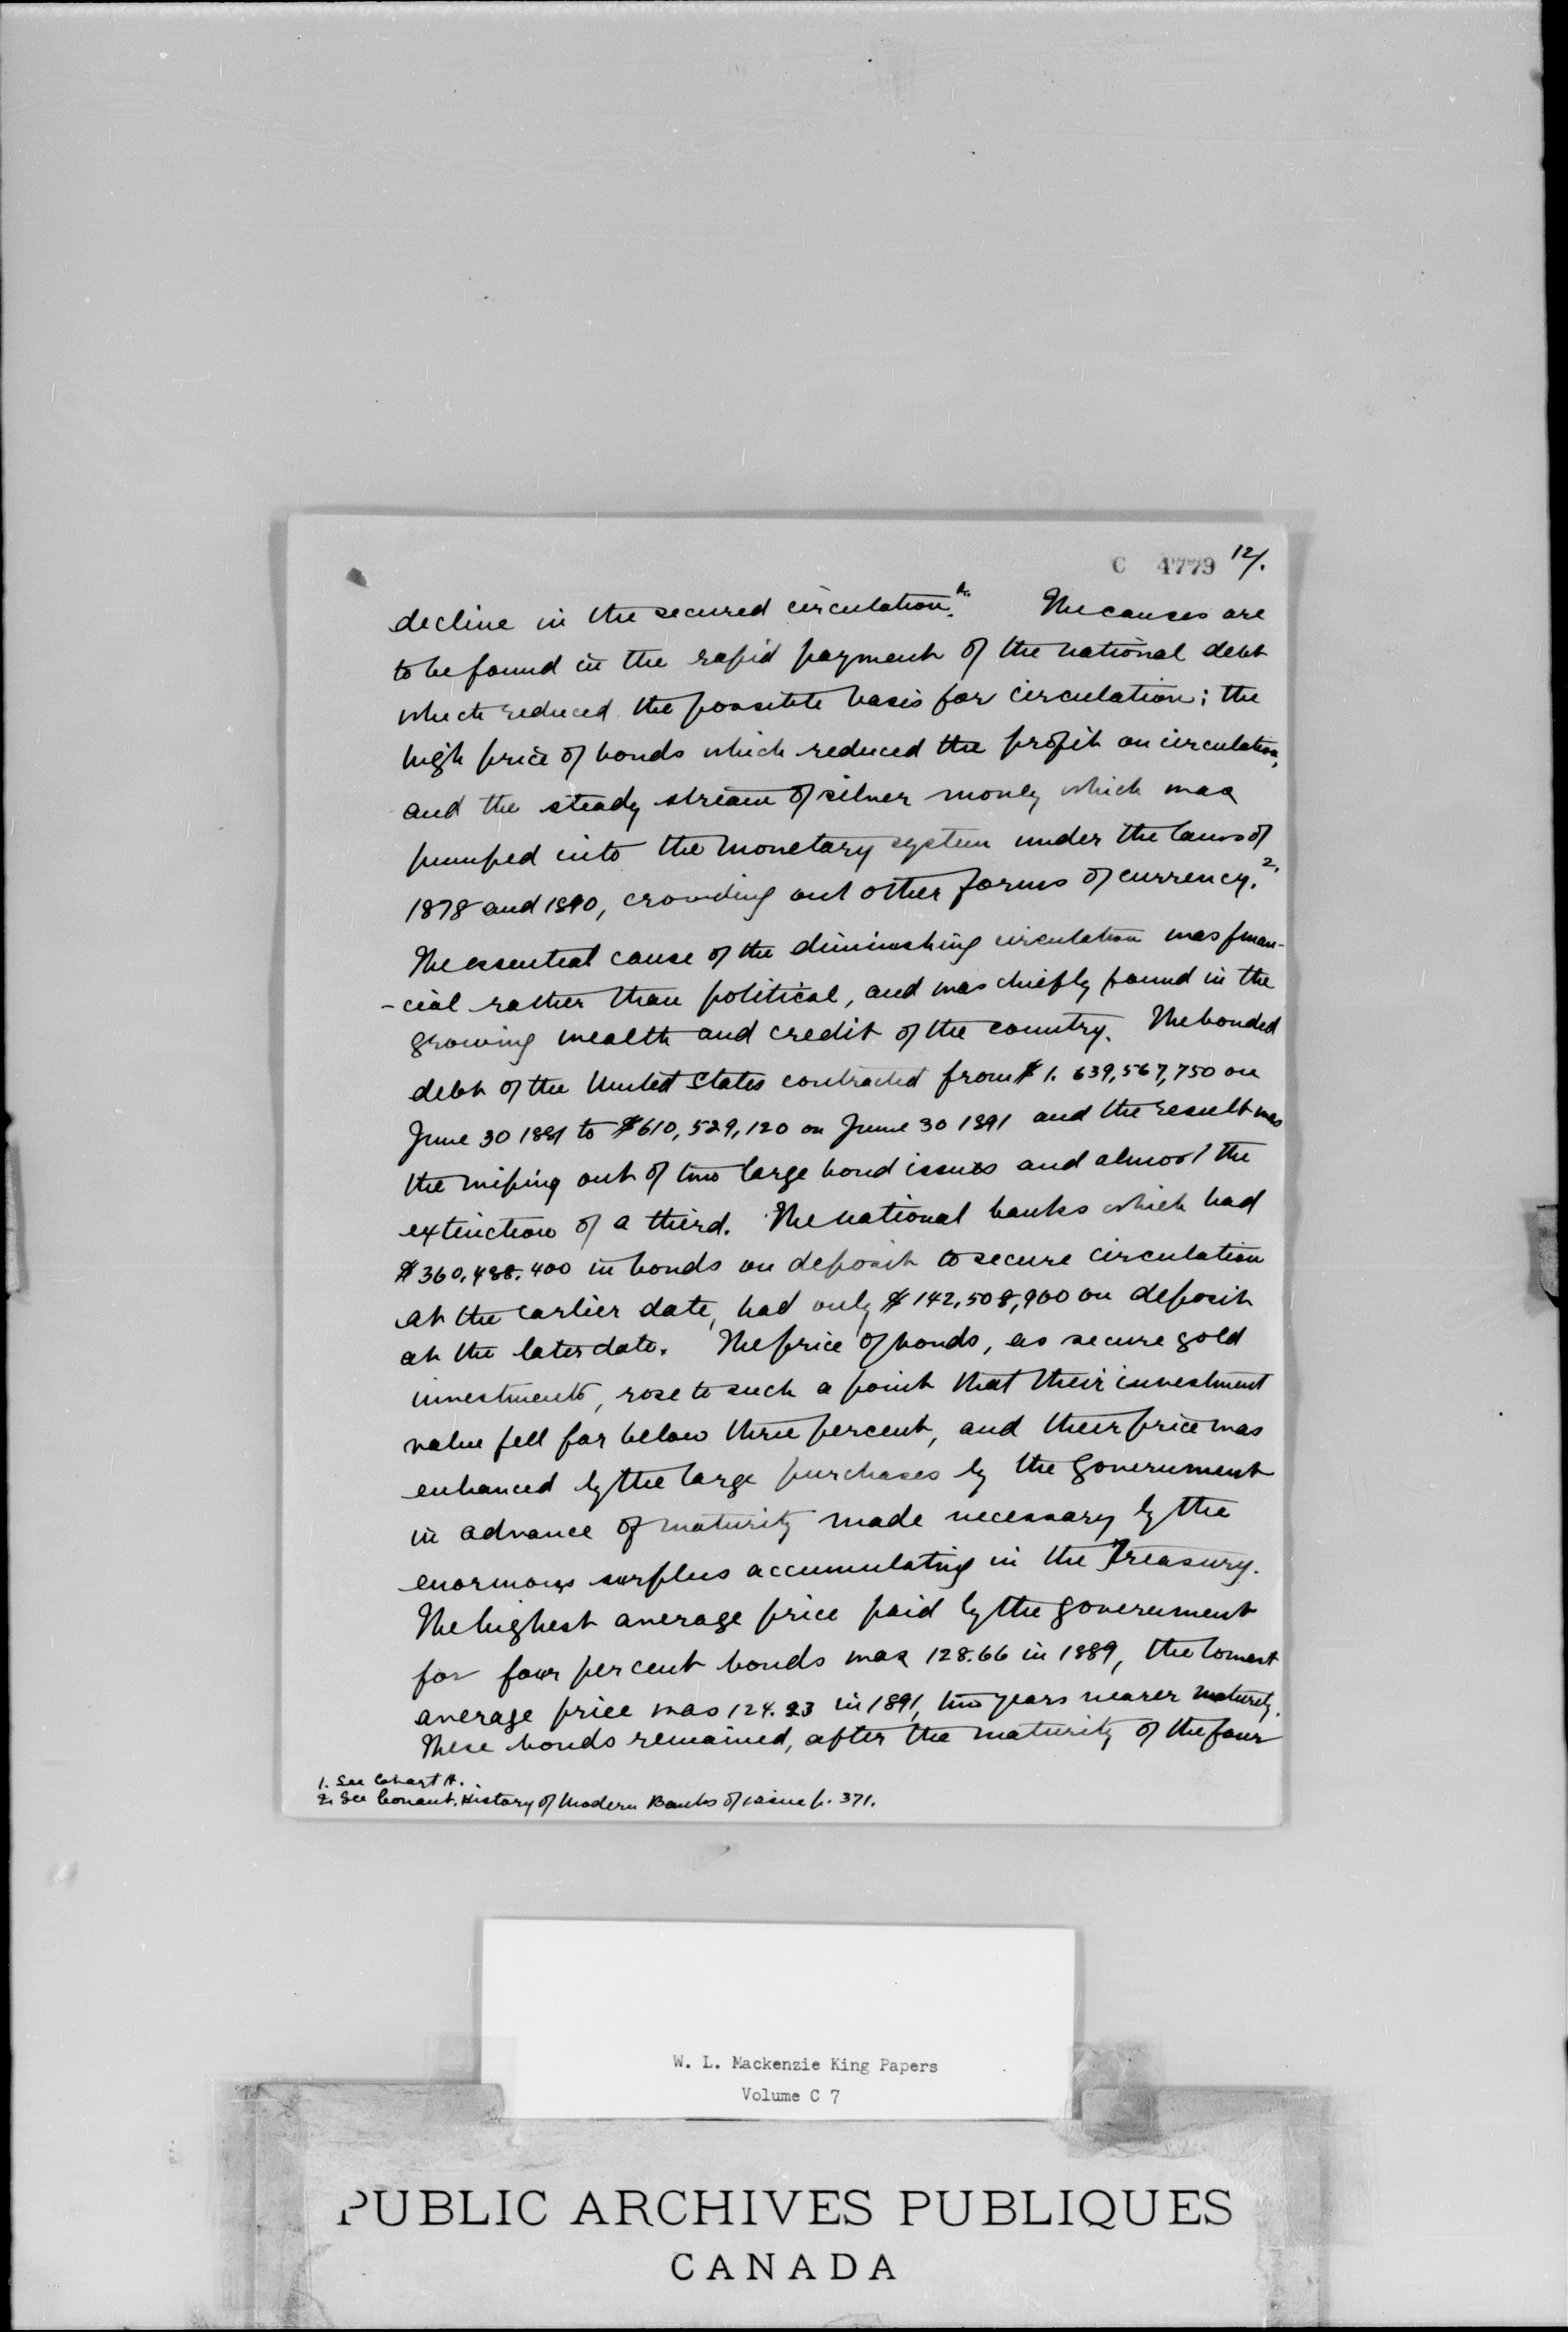 C 4779 12/.
decline in the secured circulation.1. The causes are
to be found in the rapid payment of the national debt
which reduced the possible basis for circulation; the
high price of bonds which reduced the profit on circulation,
and the steady stream of silver money which was
pumped into the monetary system under the laws of
1878 and 1890, crowding out other forms of currency.2.
The essential cause of the diminishing circulation was finan-
-cial rather than political, and was chiefly found in the
growing wealth and credit of the country. The bonded
debt of the United States contracted from $1.639,567,750 on
June 30 1881 to $610,529,120 on June 30 1891 and the result was
the wiping out of two large bond issues and almost the
extinction of a third. The national banks which had
$360,488.400 in bonds on deposit to secure circulation
at the earlier date, had only $142,508,900 on deposit
at the later date. The price of bonds, as secure gold
investments, rose to such a point that their investment
value fell far below three percent, and their price was
enhanced by the large purchases by the Government
in advance of maturity made necessary by the
enormous surplus accumulating in the Treasury.
The highest average price paid by the government
for four per cent bonds was 128.66 in 1889, the lowest
average price was 124.23 in 1891, two years nearer maturity.
These bonds remained, after the maturity of the four
1. See Chart A.
2. See Conant. History of Modern Banks of issue p. 371.
W. L. Mackenzie King Papers
Volume C 7
PUBLIC ARCHIVES PUBLIQUES
CANADA